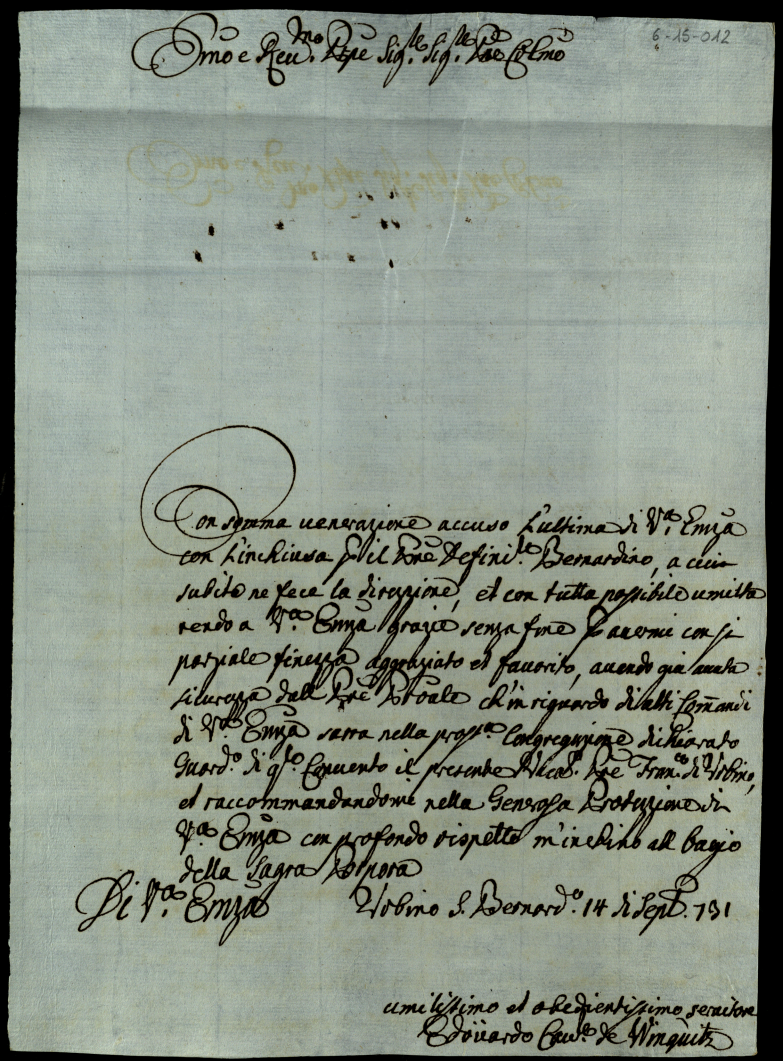 6-15-012
Emo e Reu.mo Pñpe Sig.re Sig.re Pñe Colmo
Con somma uenerazione accuso L'ultima di V.a Emza
con L'inchiusa p il Pre Definit.re Bernardino, a cui
subito ne fece la direzione, et con tutta possibile umiltà
rendo a V.a Emza grazie senza fine p auermi con si
parziale finezza aggraziato et fauorito, auendo già auuta
sicurezza dall Pre Prouale ch'in riguardo di alti Comandi
di V.a Emza sarra nella pross.a Congregazione dichiarato
Guard.o di q.to Conuento il presente Vicar.o Pre Fran.co di Urbino,
et raccommandandomi nella Generosa Protezzione di
V.a Emza con profondo rispetto m'inchino all bagio
della Sagra Porpora
Di V.a Emza Urbino S. Bernard.o 14 di Sept. 731
umilissimo et obedientissimo seruitore
Edöuardo Cau.re de Winqüitz